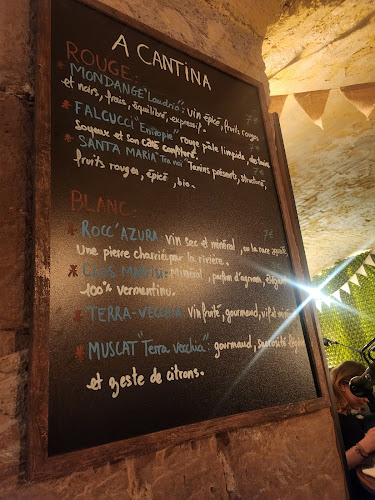 A CANTINA
ROUGE:
* MONDANGE "Loudriò": vin épicé, fruits rouges
et noirs, frais, équilibré, expressif. 7€
* FALCUCCI "Eniopie" rouge pâle limpide, des tanins
soyeux et son côté confituré. 7€
* SANTA MARIA "Tra noi" Tanins présents, structuré,
fruits rouges, épicé, bio. 7€
BLANC
* ROCC'AZURA: vin sec et minéral, on la race 7€
Une pierre charriée par la rivière.
* CLOS Minéral, parfum d'agrumes,
100% vermentinu.
* TERRA-VECCHIA: Vin fruité, gourmand, vif et
* MUSCAT "Terra vecchia": gourmand, sucrosité
et zeste de citrons.